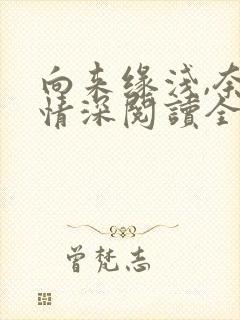 向来缘浅,奈
情深阅讀全
曾梵志